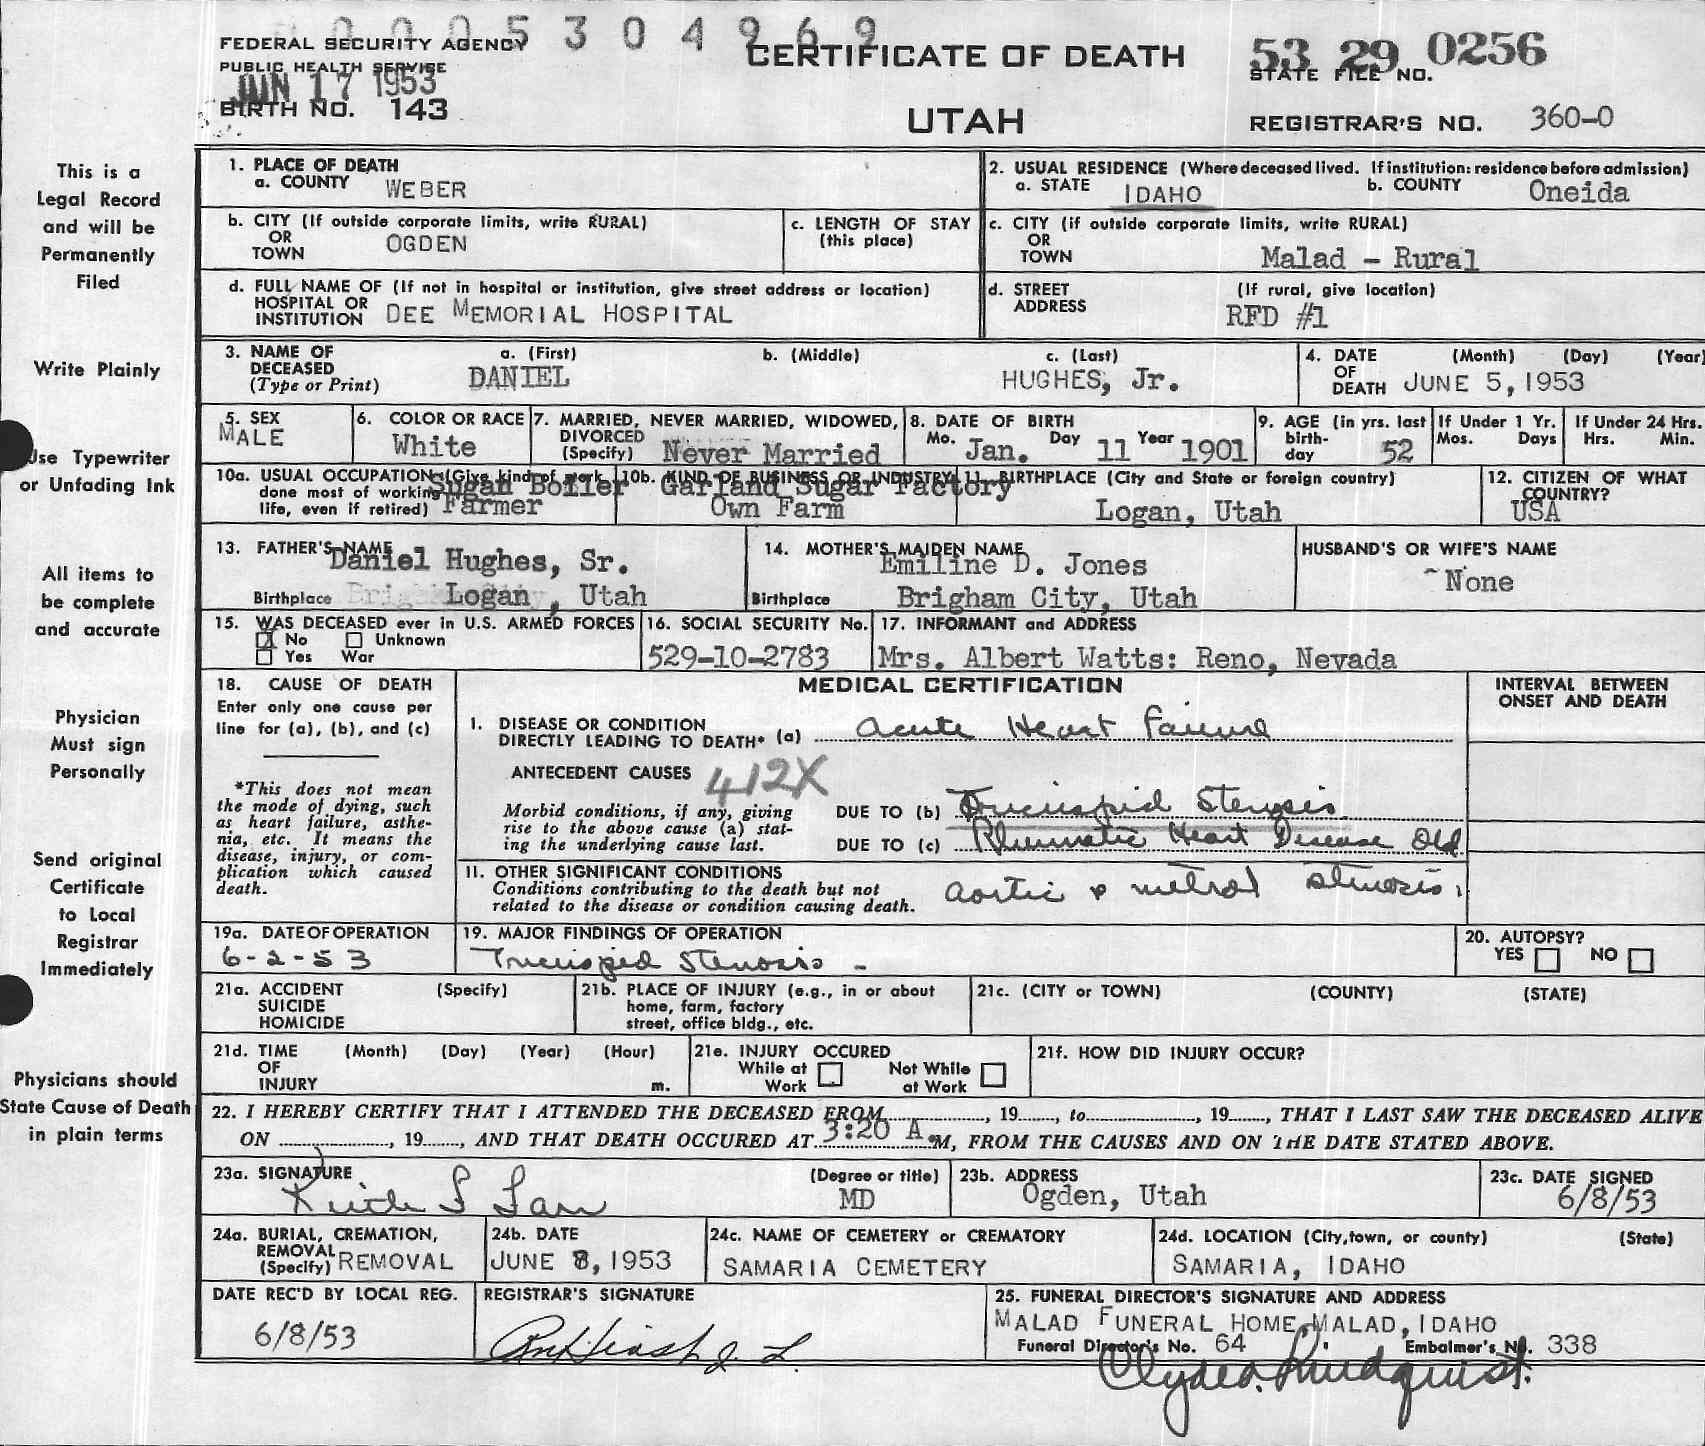 0005304969
FEDERAL SECURITY AGENCY
PUBLIC HEALTH SERVICE
JUN 17 1953
BIRTH NO. 143
CERTIFICATE OF DEATH
UTAH
53 29 0256
STATE FILE NO.
REGISTRAR'S NO. 360-0
This is a
Legal Record
and will be
Permanently
Filed
Write Plainly
Use Typewriter
or Unfading Ink
All items to
be complete
and accurate
Physician
Must sign
Personally
Send original
Certificate
to Local
Registrar
Immediately
Physicians should
State Cause of Death
in plain terms
1. PLACE OF DEATH
a. COUNTY WEBER
2. USUAL RESIDENCE (Where deceased lived. If institution: residence before admission)
a. STATE IDAHO b. COUNTY Oneida
b. CITY (If outside corporate limits, write RURAL)
OR
TOWN OGDEN
c. LENGTH OF STAY
(this place)
c. CITY (if outside corporate limits, write RURAL)
OR
TOWN Malad - Rural
d. FULL NAME OF (If not in hospital or institution, give street address or location)
HOSPITAL OR
INSTITUTION DEE MEMORIAL HOSPITAL
d. STREET (If rural, give location)
ADDRESS RFD #1
3. NAME OF a. (First) b. (Middle) c. (Last)
DECEASED
(Type or Print) DANIEL HUGHES, Jr.
4. DATE (Month) (Day) (Year)
OF
DEATH JUNE 5, 1953
5. SEX
MALE
6. COLOR OR RACE
White
7. MARRIED, NEVER MARRIED, WIDOWED,
DIVORCED
(Specify) Never Married
8. DATE OF BIRTH
Mo. Jan. Day 11 Year 1901
9. AGE (in yrs. last
birth-
day 52
If Under 1 Yr.
Mos. Days
If Under 24 Hrs.
Hrs. Min.
10a. USUAL OCCUPATION (Give kind of work
done most of working
life, even if retired)
Sugar Boiler
Farmer
10b. KIND OF BUSINESS OR INDUSTRY
Garland Sugar Factory
Own Farm
11. BIRTHPLACE (City and State or foreign country)
Logan, Utah
12. CITIZEN OF WHAT
COUNTRY?
USA
13. FATHER'S NAME
Daniel Hughes, Sr.
Birthplace Logan, Utah
14. MOTHER'S MAIDEN NAME
Emiline D. Jones
Birthplace Brigham City, Utah
HUSBAND'S OR WIFE'S NAME
None
15. WAS DECEASED ever in U.S. ARMED FORCES
X No Unknown
Yes War
16. SOCIAL SECURITY No.
529-10-2783
17. INFORMANT and ADDRESS
Mrs. Albert Watts: Reno, Nevada
18. CAUSE OF DEATH
Enter only one cause per
line for (a), (b), and (c)
*This does not mean
the mode of dying, such
as heart failure, asthe-
nia, etc. It means the
disease, injury, or com-
plication which caused
death.
MEDICAL CERTIFICATION
INTERVAL BETWEEN
ONSET AND DEATH
1. DISEASE OR CONDITION
DIRECTLY LEADING TO DEATH* (a) Acute Heart Failure
ANTECEDENT CAUSES 412X
Morbid conditions, if any, giving
rise to the above cause (a) stat-
ing the underlying cause last.
DUE TO (b) Tricuspid Stenosis
DUE TO (c) Rheumatic Heart Disease Old
11. OTHER SIGNIFICANT CONDITIONS
Conditions contributing to the death but not
related to the disease or condition causing death.
Aortic & mitral stenosis.
19a. DATE OF OPERATION
6-2-53
19. MAJOR FINDINGS OF OPERATION
Tricuspid Stenosis -
20. AUTOPSY?
YES NO
21a. ACCIDENT (Specify)
SUICIDE
HOMICIDE
21b. PLACE OF INJURY (e.g., in or about
home, farm, factory
street, office bldg., etc.
21c. (CITY or TOWN) (COUNTY) (STATE)
21d. TIME (Month) (Day) (Year) (Hour)
OF
INJURY m.
21e. INJURY OCCURED
While at Not While
Work at Work
21f. HOW DID INJURY OCCUR?
22. I HEREBY CERTIFY THAT I ATTENDED THE DECEASED FROM, 19, to, 19, THAT I LAST SAW THE DECEASED ALIVE
ON, 19, AND THAT DEATH OCCURED AT 3:20 A.M, FROM THE CAUSES AND ON THE DATE STATED ABOVE.
23a. SIGNATURE (Degree or title)
Keith S MD
23b. ADDRESS
Ogden, Utah
23c. DATE SIGNED
6/8/53
24a. BURIAL, CREMATION,
REMOVAL
(Specify) REMOVAL
24b. DATE
JUNE 8, 1953
24c. NAME OF CEMETERY or CREMATORY
SAMARIA CEMETERY
24d. LOCATION (City, town, or county) (State)
SAMARIA, IDAHO
DATE REC'D BY LOCAL REG.
6/8/53
REGISTRAR'S SIGNATURE
25. FUNERAL DIRECTOR'S SIGNATURE AND ADDRESS
MALAD FUNERAL HOME, MALAD, IDAHO
Funeral Director's No. 64 Embalmer's No. 338
Lindquist